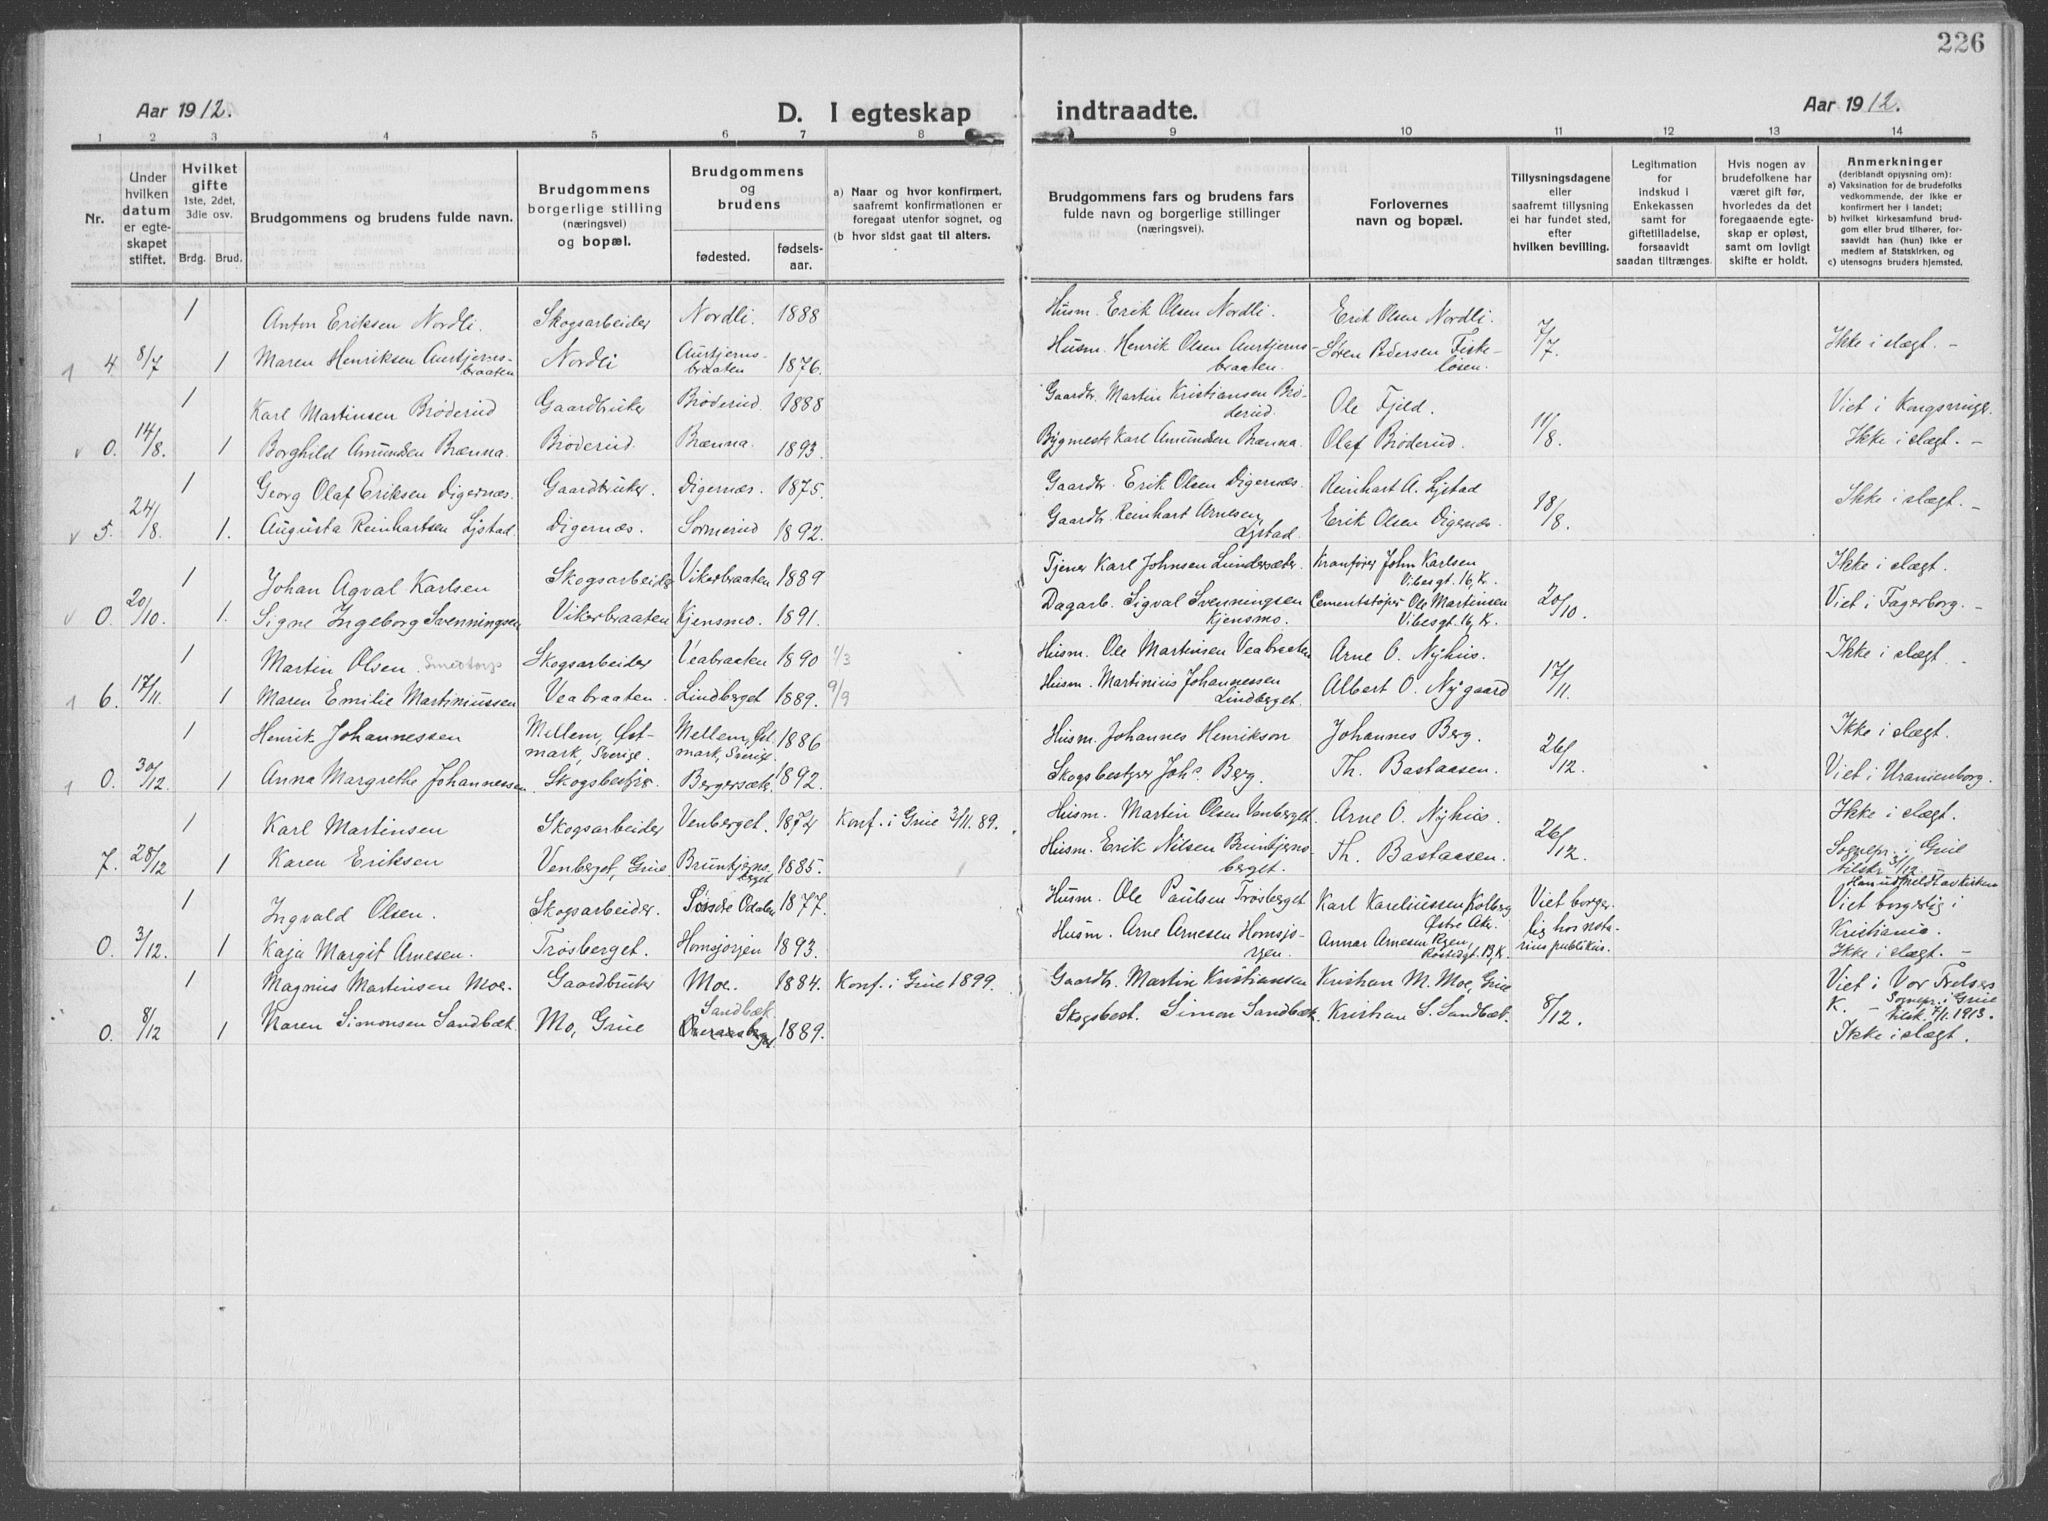 226
Aar 1912.
D. I egteskap
indtraadte.
Aar 1912.
1 2 3 4 5 6 7 8 9 10 11 12 13 14
Nr.
Under hvilken datum er egteskapet stiftet.
Hvilket gifte
1ste, 2det, 3die osv.
Brdg. Brud.
Brudgommens og brudens fulde navn.
Brudgommens borgerlige stilling (næringsvei) og bopæl.
Brudgommens og brudens
fødested.
fødsels-aar.
a) Naar og hvor konfirmert, saafremt konfirmationen er foregaat utenfor sognet, og
(b hvor sidst gaat til alters.
Brudgommens fars og brudens fars fulde navn og borgerlige stillinger (næringsvei).
Forlovernes navn og bopæl.
Tillysningsdagene eller saafremt tillysning ei har fundet sted, efter hvilken bevilling.
Legitimation for indskud i Enkekassen samt for giftetilladelse, forsaavidt saadan tiltrænges.
Hvis nogen av brudefolkene har været gift før, hvorledes da det foregaaende egteskap er opløst, samt om lovligt skifte er holdt.
Anmerkninger
(deriblandt opjysning om):
a) Vaksination for de brudefolks vedkommende, der ikke er konfirmert her i landet;
b) hvilket kirkesamfund brudgom eller brud tilhører, forsaavidt han (hun) ikke er medlem af Statskirken, og
c) utensogns bruders hjemsted.
1 Anton Eriksen Nordli. Skogsarbeider Nordli. 1888 Husm. Erik Olsen Nordli. Erik Olsen Nordli. 7/7. Ikke i slægt. -
4 8/7 1 Maren Henriksen Aurtjernsbraaten Nordli Aurtjernsbraaten 1876. Husm. Henrik Olsen Aurtjernsbraaten. Søren Pedersen Fiskeløsen.
1 Karl Martinsen Brøderud Gaardbruker Brøderud. 1888 Gaardbr. Martin Kristiansen Brøderud. Ole Fjeld. 11/8. Viet i Kongsvinger.
0. 14/8. 1 Borghild Amundsen Brænna. Brøderud. Brænna. 1893. Bygmester Karl Amundsen Brænna. Olaf Brøderud. Ikke i slægt. -
1 Georg Olaf Eriksen Digernæs. Gaardbruker. Digernæs. 1875. Gaardbr. Erik Olsen Digernæs. Reinhart A. Lystad 18/8. Ikke i slægt. -
5. 24/8. 1. Augusta Reinhartsen Lystad. Digernæs. Sormerud 1892. Gaardb. Reinhart Arnesen Lystad. Erik Olsen Digernæs.
1 Johan Agval Karlsen Skogsarbeider Vikerbraaten 1889 Tjener Karl Johnsen Lundersæter. Kranfører John Karlsen Vibesgt. 16, Kr. 20/10. Ikke i slægt.
0. 20/10. 1. Signe Ingeborg Svenningsen Vikerbraaten Kjensmo. 1891. Dagarb. Sigval Svenningsen Kjensmo. Cementstøper Ole Martinsen Vibesgt. 16, Kr. Viet i Fagerborg. -
1 Martin Olsen. Smedtorp Skogsarbeider Veabraaten 1890 1/3 Husm. Ole Martinsen Veabraaten Arne O. Nyhus. 17/11. Ikke i slægt. -
6. 17/11. 1 Maren Emilie Martiniussen Veabraaten. Lindberget 1889. 9/9 Husm. Martinius Johannessen Lindberget. Albert O. Nygaard
1 Henrik Johannessen Mellem, Østmark, Sverige. Mellem, Østmark, Sverige. 1886 Husm. Johannes Henrikson Johannes Berg. 26/12. Ikke i slægt.
0. 30/12. 1 Anna Margrethe Johannessen. Skogsbestyr. Bergersæter 1892. Skogsbestyrer Johs. Berg. Th. Bastaasen. Viet i Uranienborg.
1 Karl Martinsen Skogsarbeider Venberget. 1874 Konf. i Grue 3/11. 89. Husm. Martin Olsen Venberget. Arne O. Nyhus. 26/12. Ikke i slægt.
7. 28/12 1 Karen Eriksen Venberget, Grue. Bruntjernsberget 1885. Husm. Erik Nilsen Bruntjernsberget. Th. Bastaasen. Sognepr. i Grue tilskr. 31/12.
1 Ingvald Olsen. Skogsarbeider. Søndre Odalen 1877. Husm. Ole Paulsen Trøsberget Karl Kareliussen Kolberg Østre Aker. Viet borgerlig hos notarius publikus. Han udmeldt av kirken Viet borgerlig i Kristiania.
0. 3/12. 1 Kaja Margit Arnesen. Trøsberget. Homsjøryen 1893. Husm. Arne Arnesen Homsjøryen. Annar Arnesen Ryen, Rostedgt. 13, K. Ikke i slægt. -
1 Magnus Martinsen Moe. Gaardbruker Moe. 1884. Konf. i Grue 1899. Gaardb. Martin Kristiansen Kristian M. Moe, Grue 8/12. Viet i Vor Frelsers K. - Sognepr. i Grue tilsk. 7/1. 1913.
0. 8/12 1 Karen Simonsen Sandbæk. Mo, Grue Sandbæk. 1889. Skogsbest. Simon Sandbæk. Kristian S. Sandbæk. Ikke i slægt.